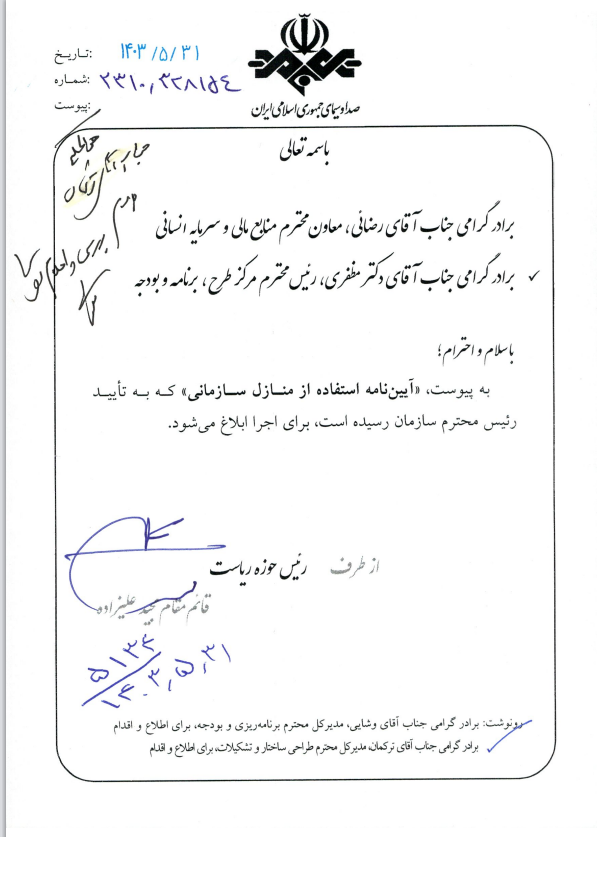 صدا و سیمای جمهوری اسلامی ایران
تاریخ: ۱۴۰۳/۵/۳۱
شماره:
پیوست:
باسمه تعالی
جناب آقای
برادر گرامی جناب آقای رضائی، معاون محترم منابع مالی و سرمایه انسانی
✓ برادر گرامی جناب آقای دکتر مظفری، رئیس محترم مرکز طرح، برنامه و بودجه
با سلام و احترام؛
به پیوست، «آیین‌نامه استفاده از منازل سازمانی» که به تأیید
رئیس محترم سازمان رسیده است، برای اجرا ابلاغ می‌شود.
از طرف رئیس حوزه ریاست
قائم مقام مجید علیزاده
۵۱۳۴
۱۴۰۳٫۵٫۳۱
رونوشت: برادر گرامی جناب آقای وشایی، مدیرکل محترم برنامه‌ریزی و بودجه، برای اطلاع و اقدام
برادر گرامی جناب آقای ترکمان، مدیرکل محترم طراحی ساختار و تشکیلات، برای اطلاع و اقدام